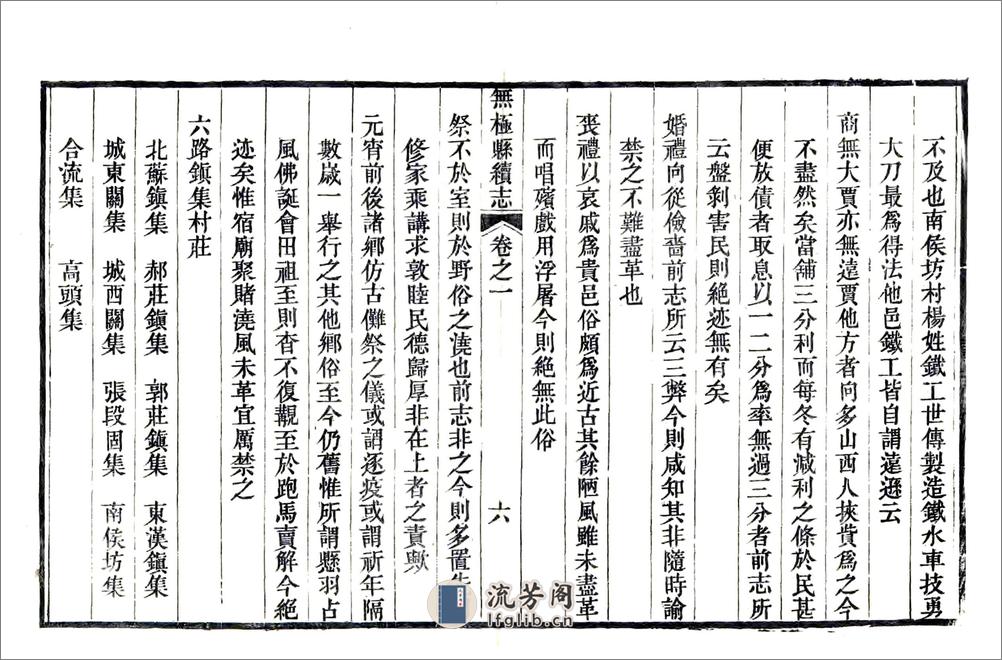 不及也南侯坊村楊姓鐵工世傳製造鐵水車技勇
大刀最爲得法他邑鐵工皆自謂遠遜云
商無大賈亦無遠賈他方者向多山西人挾貲爲之今
不盡然矣當舖三分利而每冬有減利之條於民甚
便放債者取息以一二分爲率無過三分者前志所
云盤剝害民則絕迹無有矣
婚禮向從儉嗇前志所云三弊今則咸知其非隨時諭
禁之不難盡革也
喪禮以哀戚爲貴邑俗頗爲近古其餘陋風雖未盡革
而唱殯戲用浮屠今則絕無此俗
無極縣續志 卷之一 六
祭不於室則於野俗之澆也前志非之今則多置
修家乘講求敦睦民德歸厚非在上者之責歟
元宵前後諸鄉仿古儺祭之儀或謂逐疫或謂祈年隔
數歲一舉行之其他鄉俗至今仍舊惟所謂懸羽占
風佛誕會田祖至則杳不復觀至於跑馬賣解今絕
迹矣惟宿廟聚賭澆風未革宜厲禁之
六路鎮集村莊
北蘇鎮集 郝莊鎮集 郭莊鎮集 東漢鎮集
城東關集 城西關集 張段固集 南侯坊集
合流集 高頭集
流芳阁
lfglib.cn